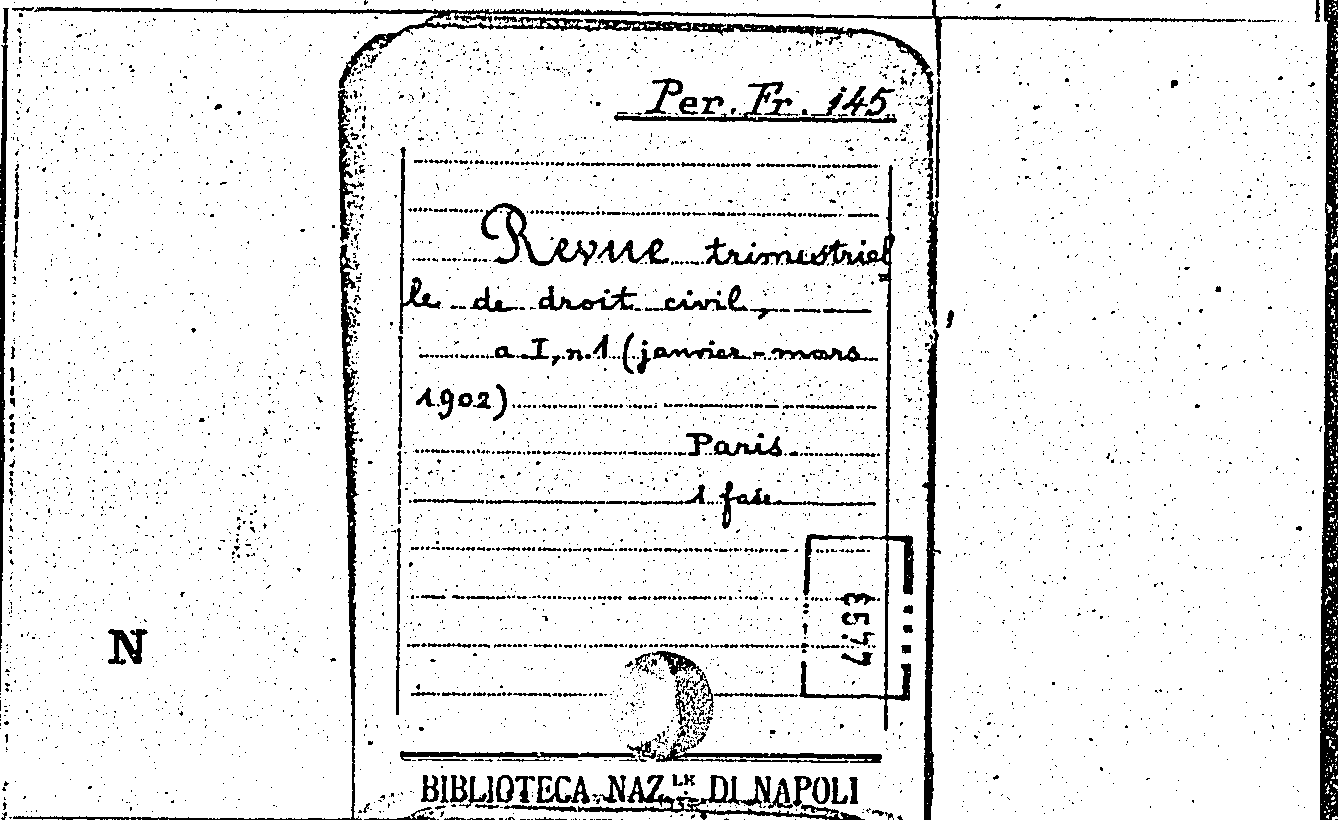 Per. Fr. 145
Revue trimestriel
le de droit civil,
a. I, n. 1 (janvier - mars
1902)
Paris
1 fasc.
3577
N
BIBLIOTECA NAZ.LE DI NAPOLI